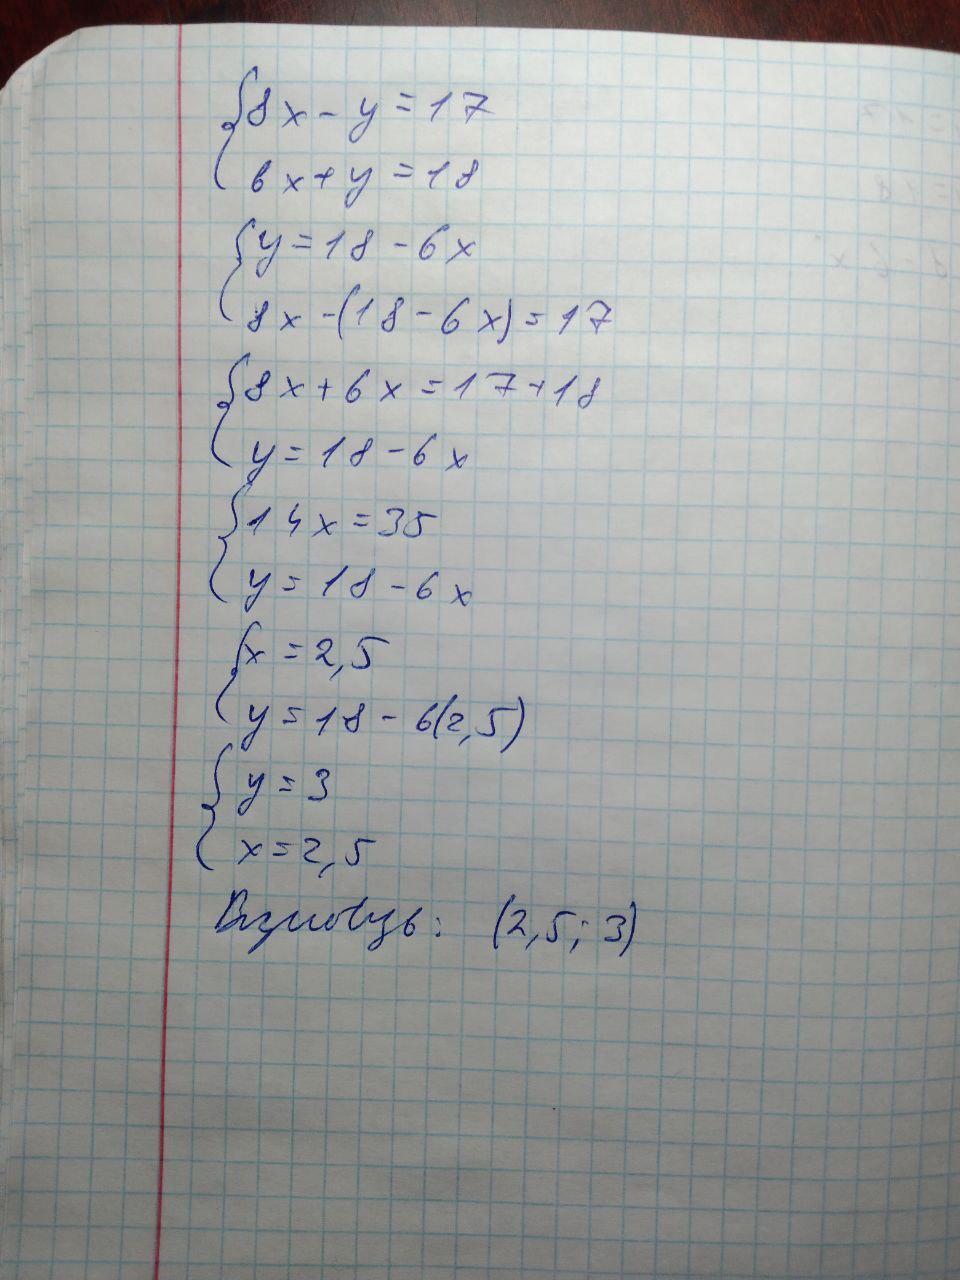 {8x - y = 17
6x + y = 18
{y = 18 - 6x
8x - (18 - 6x) = 17
{8x + 6x = 17 + 18
y = 18 - 6x
{14x = 35
y = 18 - 6x
{x = 2,5
y = 18 - 6(2,5)
{y = 3
x = 2,5
Відповідь: (2,5; 3)